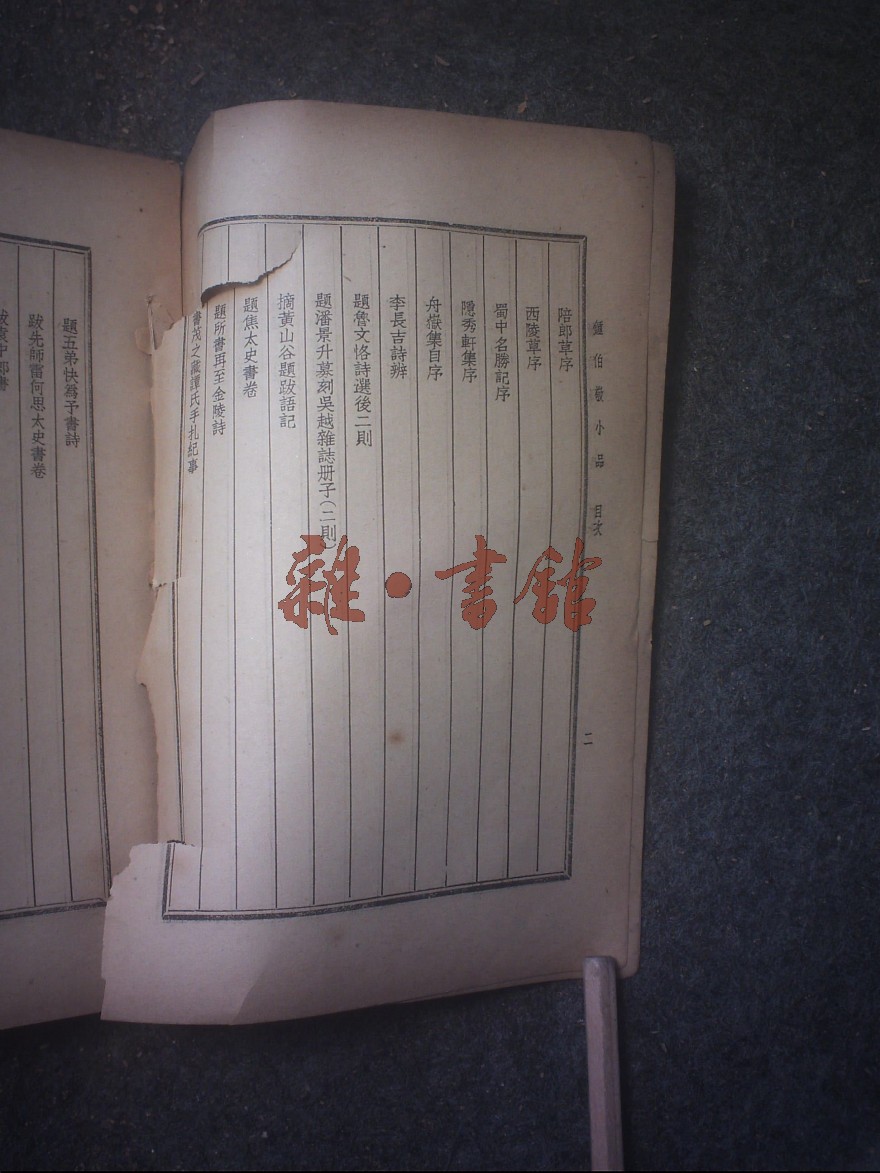 鍾伯敬小品 目次
二
陪郎草序
西陵草序
蜀中名勝記序
隱秀軒集序
舟嶽集自序
李長吉詩辨
題魯文恪詩選後二則
題潘景升募刻吳越雜誌册子(二則)
摘黃山谷題跋語記
題焦太史書卷
題所書再至金陵詩
書茂之藏譚氏手札紀事
題五弟快爲予書詩
跋先師雷何思太史書卷
跋袁中郎書
雜·書館